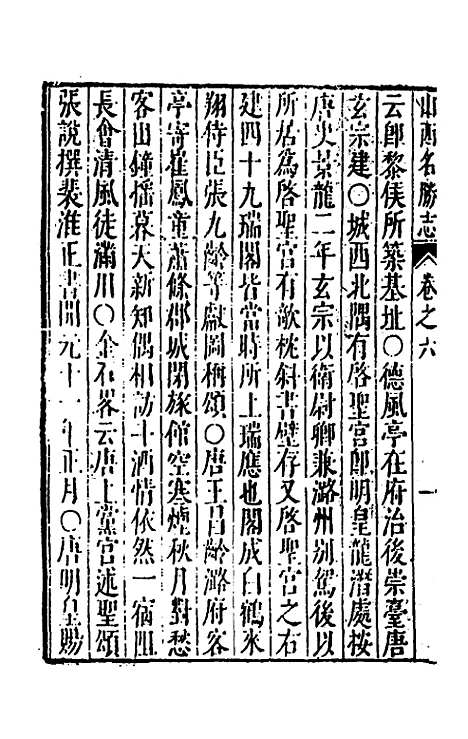 山西名勝志 卷之六 一
云卽黎侯所築基址〇德風亭在府治後崇臺唐
玄宗建〇城西北隅有啓聖宮卽明皇龍潛處按
唐史景龍二年玄宗以衛尉卿兼潞州別駕後以
所居爲啓聖宮有欹枕斜書壁存又啓聖宮之右
建四十九瑞閣皆當時所上瑞應也閣成白鶴來
翔侍臣張九齡等獻圖梅頌〇唐王昌齡潞府客
亭寄崔鳳童蕭條郡城閉旅館空寒煙秋月對愁
客山鐘搖暮天新知偶相訪斗酒情依然一宿阻
長會清風徒滿川〇金石畧云唐上黨宮述聖頌
張說撰裴漼正書開元十一年正月〇唐明皇賜